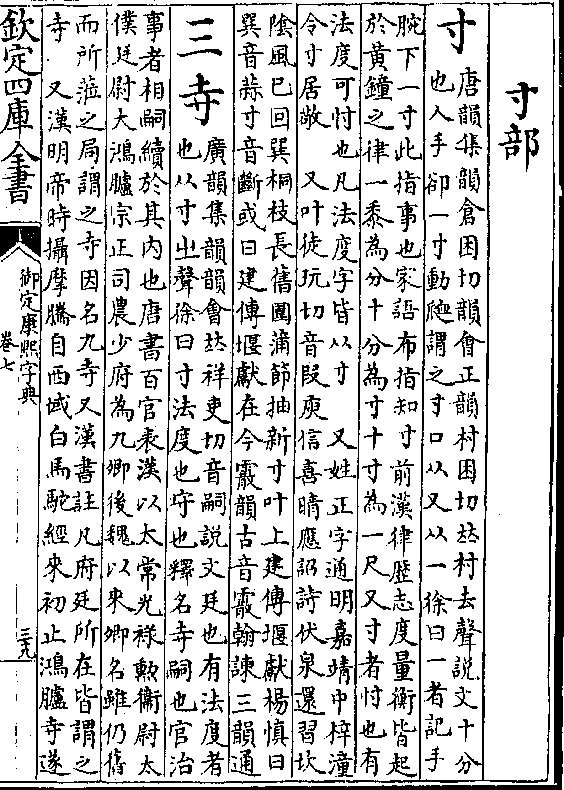 寸部
寸 唐韻集韻倉困切韻會正韻村困切𠀤村去聲說文十分
也人手卻一寸動𧖴謂之寸口从又从一徐曰一者記手
腕下一寸此指事也家語布指知寸前漢律歷志度量衡皆起
於黃鐘之律一黍為分十分為寸十寸為一尺又寸者忖也有
法度可忖也凡法度字皆从寸 又姓正字通明嘉靖中梓潼
令寸居敬 又叶徒玩切音段庾信喜晴應詔詩伏泉還習坎
隂風已回巽桐枝長舊圍蒲節抽新寸叶上建傳堰獻楊慎曰
巽音蒜寸音斷或曰建傳堰獻在今霰韻古音霰翰諫三韻通
三 寺 廣韻集韻韻會𠀤祥吏切音嗣說文廷也有法度者
也从寸㞢聲徐曰寸法度也守也釋名寺嗣也官治
事者相嗣續於其内也唐書百官表漢以太常光祿勲衞尉太
僕廷尉大鴻臚宗正司農少府為九卿後魏以來卿名雖仍舊
而所蒞之局謂之寺因名九寺又漢書註凡府廷所在皆謂之
寺 又漢明帝時攝摩騰自西域白馬駝經來初止鴻臚寺遂
欽定四庫全書
御定康熙字典
卷七
三九